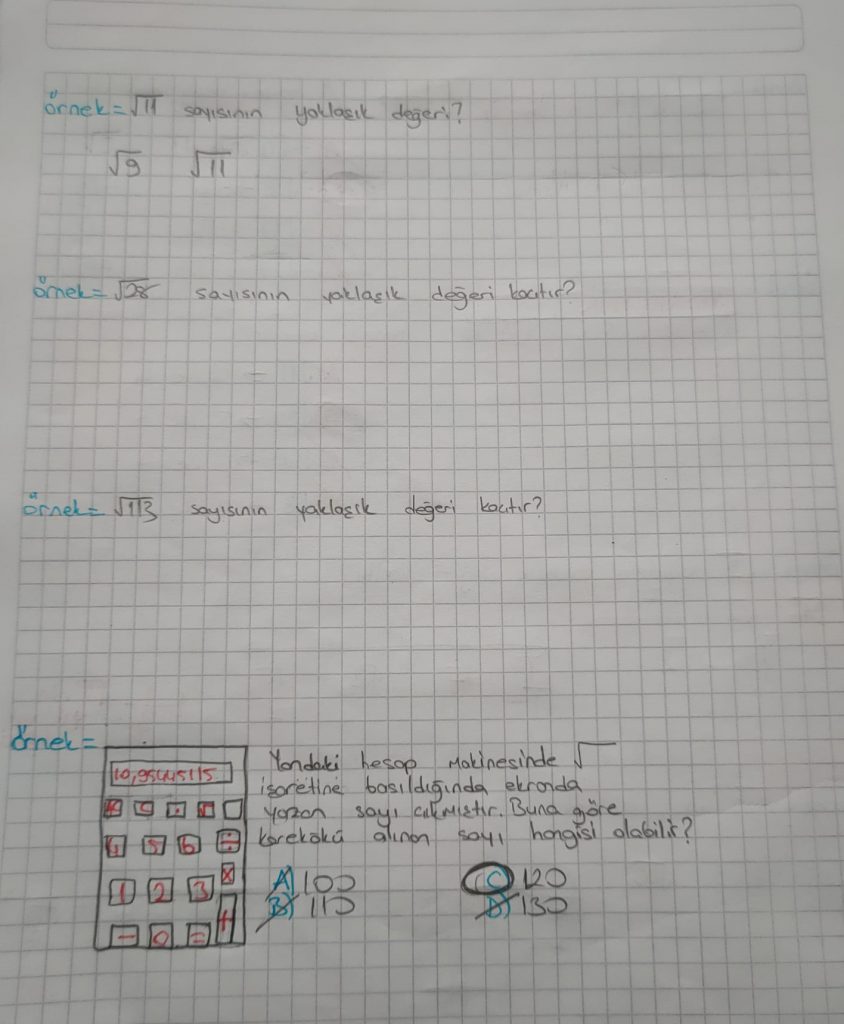 örnek = √11 sayısının yaklaşık değeri?
√9 √11
örnek = √28 sayısının yaklaşık değeri kaçtır?
örnek = √113 sayısının yaklaşık değeri kaçtır?
örnek =
10,95445115
Yandaki hesap makinesinde √
işaretine basıldığında ekranda
yazan sayı çıkmıştır. Buna göre
karekökü alınan sayı hangisi olabilir?
4 5 6 ÷
1 2 3 x
- 0 = +
A) 100 C) 120
B) 110 D) 130